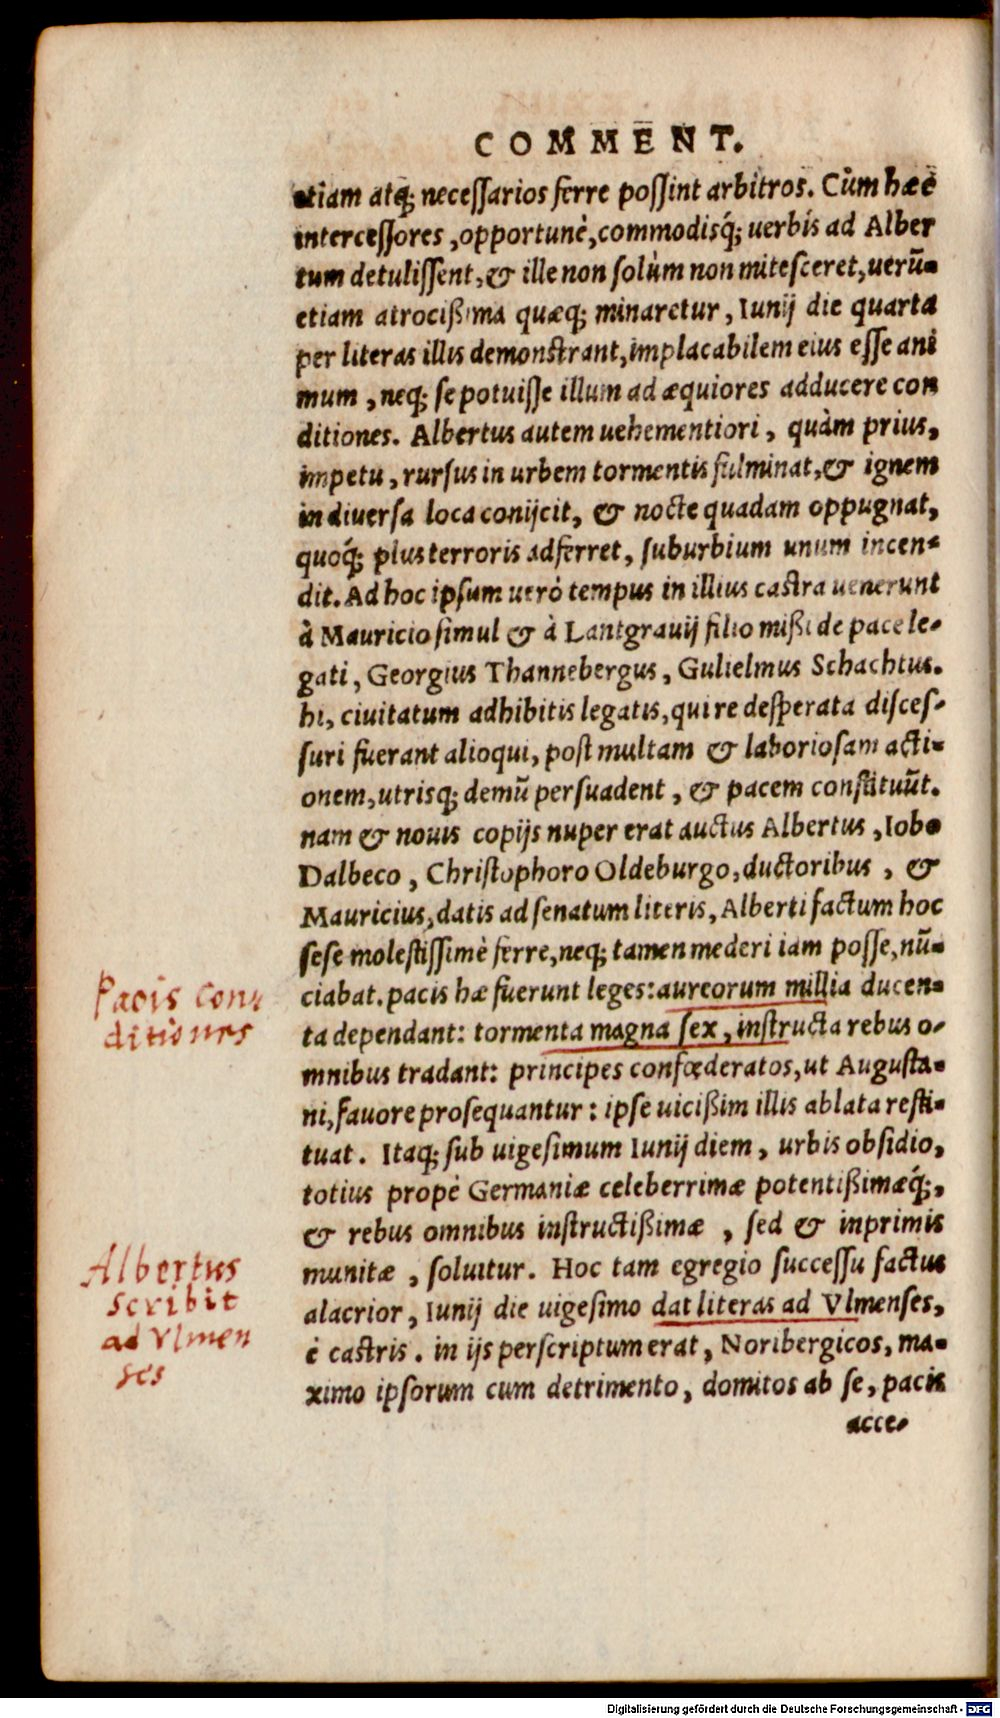 COMMENT.
etiam atq; necessarios ferre possint arbitros. Cùm hæc
intercessores, opportunè, commodisq́; uerbis ad Alber
tum detulissent, & ille non solùm non mitesceret, uerũ-
etiam atrocißima quæq; minaretur, Iunij die quarta
per literas illis demonstrant, implacabilem eius esse ani
mum, neq; se potuisse illum ad æquiores adducere con
ditiones. Albertus autem uehementiori, quàm prius,
impetu, rursus in urbem tormentis fulminat, & ignem
in diuersa loca conijcit, & nocte quadam oppugnat,
quoq́; plus terroris adferret, suburbium unum incen-
dit. Ad hoc ipsum uerò tempus in illius castra uenerunt
à Mauricio simul & à Lantgrauij filio mißi de pace le-
gati, Georgius Thannebergus, Gulielmus Schachtus.
hi, ciuitatum adhibitis legatis, qui re desperata disces-
suri fuerant alioqui, post multam & laboriosam acti-
onem, utrisq; demũ persuadent, & pacem constituũt.
nam & nouis copijs nuper erat auctus Albertus, Iobo
Dalbeco, Christophoro Oldeburgo, ductoribus, &
Mauricius, datis ad senatum literis, Alberti factum hoc
sese molestissimè ferre, neq; tamen mederi iam posse, nũ-
ciabat. pacis hæ fuerunt leges: aureorum millia ducen-
ta dependant: tormenta magna sex, instructa rebus o-
mnibus tradant: principes confœderatos, ut Augusta-
ni, fauore prosequantur: ipse uicißim illis ablata resti-
tuat. Itaq; sub uigesimum Iunij diem, urbis obsidio,
totius propè Germaniæ celeberrimæ potentißimæq́;,
& rebus omnibus instructißimæ, sed & inprimis
munitæ, soluitur. Hoc tam egregio successu factus
alacrior, Iunij die uigesimo dat literas ad Vlmenses,
è castris. in ijs perscriptum erat, Noribergicos, ma-
ximo ipsorum cum detrimento, domitos ab se, pacis
acce-
Pacis con-
ditiones
Albertus
scribit
ad Vlmen
ses
Digitalisierung gefördert durch die Deutsche Forschungsgemeinschaft - DFG